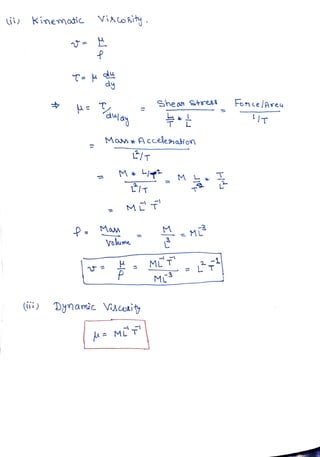 (ii) Kinematic Viscosity.
ν = μ/ρ
T = μ du/dy
⇒ μ = T/(du/dy) = Shear Stress/(L/T * 1/L) = Force/Area/(1/T)
= Mass * Acceleration/(L²/T)
= M * L/T²/(L²/T) = M L/T² * T/L²
= ML⁻¹T⁻¹
ρ = Mass/Volume = M/L³ = ML⁻³
ν = μ/ρ = ML⁻¹T⁻¹/ML⁻³ = L²T⁻¹
(iii) Dynamic Viscosity
μ = ML⁻¹T⁻¹